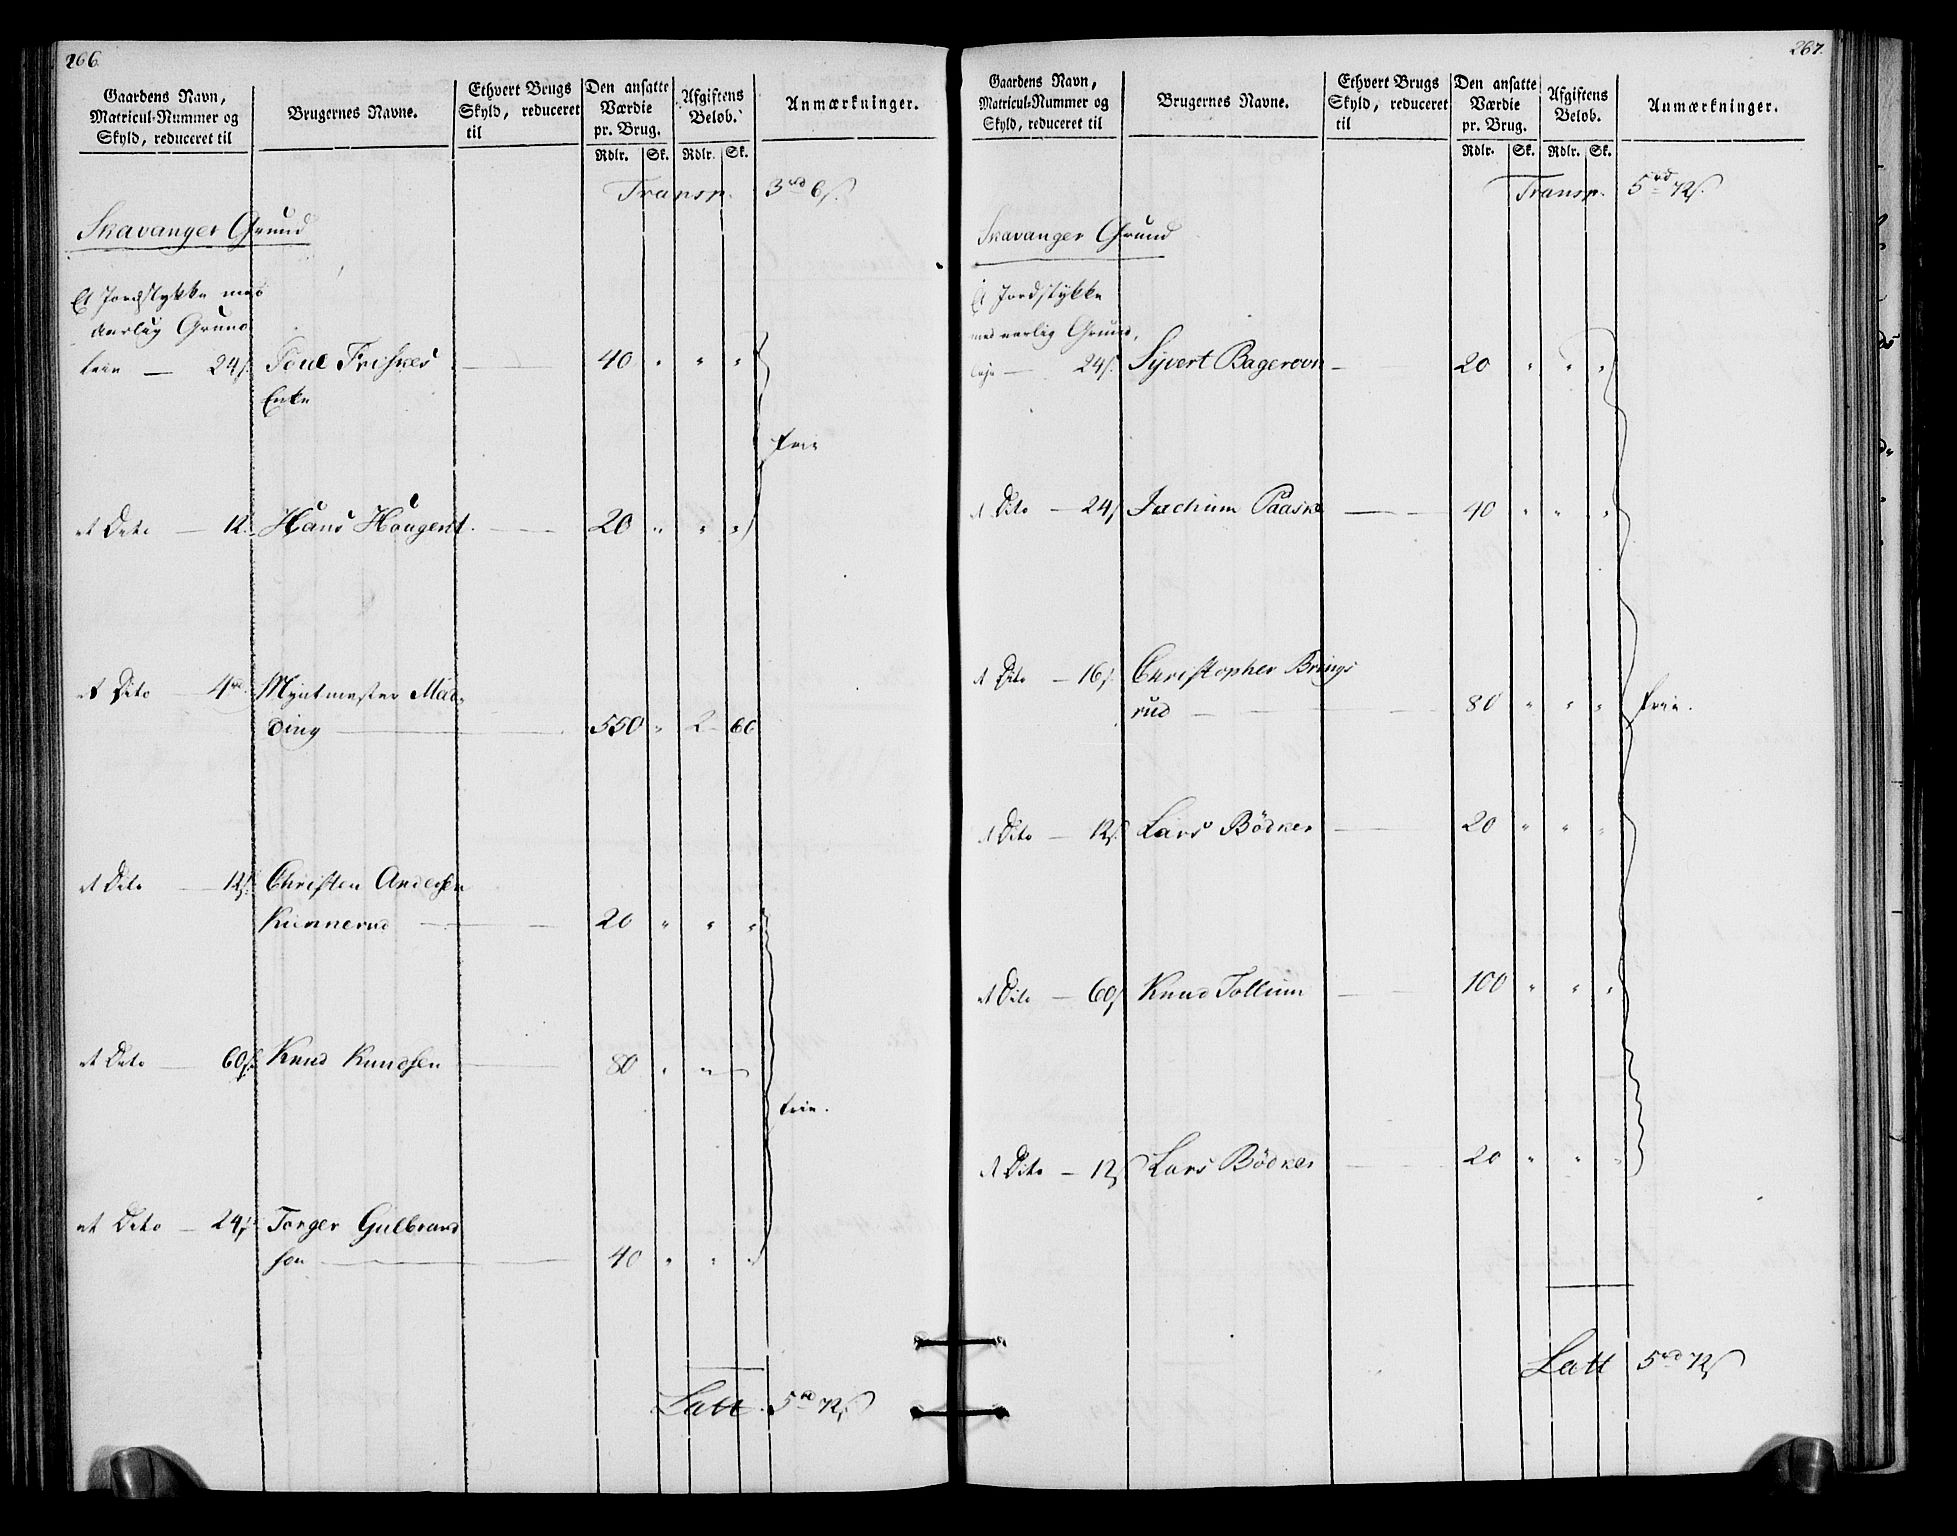 266.
Gaardens Navn,
Matricul-Nummer og
Skyld, reduceret til
Brugernes Navne.
Ethvert Brugs
Skyld, reduceret
til
Den ansatte
Værdie
pr. Brug.
Afgiftens
Beløb.
Anmærkninger.
Rdlr. Sk. Rdlr. Sk.
Transp. 3 rd 6 s.
Skavanger Grund
Et Jordstykke med
aarlig Grund
leie — 24 s. Poul Friskes — 40 " " "
Enke
frie
et Dito — 12. Hans Hougerst. — 20 " " "
et Dito — 4 rd. Myntmester Mad-
ding — 550 " 2 66
et Dito — 12 s. Christen Andersen
Kunnerud — 20 " " "
et Dito — 60 s. Knud Knudsen — 80 " " "
frie.
et Dito — 24 s. Torger Gulbrand
sen — 40 " " "
Latt. 5 rd 72 s
267.
Gaardens Navn,
Matricul-Nummer og
Skyld, reduceret til
Brugernes Navne.
Ethvert Brugs
Skyld, reduceret
til
Den ansatte
Værdie
pr. Brug.
Afgiftens
Beløb.
Anmærkninger.
Rdlr. Sk. Rdlr. Sk.
Transp. 5 rd 72 s.
Skavanger Grund
Et Jordstykke
med aarlig Grund,
leje — 24 s. Syvert Bagerovn — 20 " " "
et Dito — 24 s. Jachum Paaske — 40 " " "
et Dito — 16 s. Christopher Brings
rud — 80 " " " frie.
et Dito — 12 s. Lars Bödker — 20 " " "
et Dito — 60 s. Knud Tollium — 100 " " "
et Dito — 12 s Lars Bödker — 20 " " "
Latt 5 rd 72 s